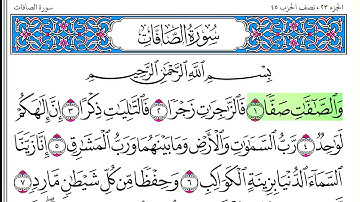 الجزء ٢٣، نصف الحزب ٤٥
سورة الصافات
سُورَةُ الصَّافَّاتِ
بِسْمِ اللَّهِ الرَّحْمَٰنِ الرَّحِيمِ
وَالصَّٰفَّٰتِ صَفًّا ١ فَالزَّٰجِرَٰتِ زَجْرًا ٢ فَالتَّٰلِيَٰتِ ذِكْرًا ٣ إِنَّ إِلَٰهَكُمْ
لَوَٰحِدٌ ٤ رَّبُّ السَّمَٰوَٰتِ وَالْأَرْضِ وَمَا بَيْنَهُمَا وَرَبُّ الْمَشَٰرِقِ ٥ إِنَّا زَيَّنَّا
السَّمَآءَ الدُّنْيَا بِزِينَةٍ الْكَوَاكِبِ ٦ وَحِفْظًا مِّن كُلِّ شَيْطَٰنٍ مَّارِدٍ ٧